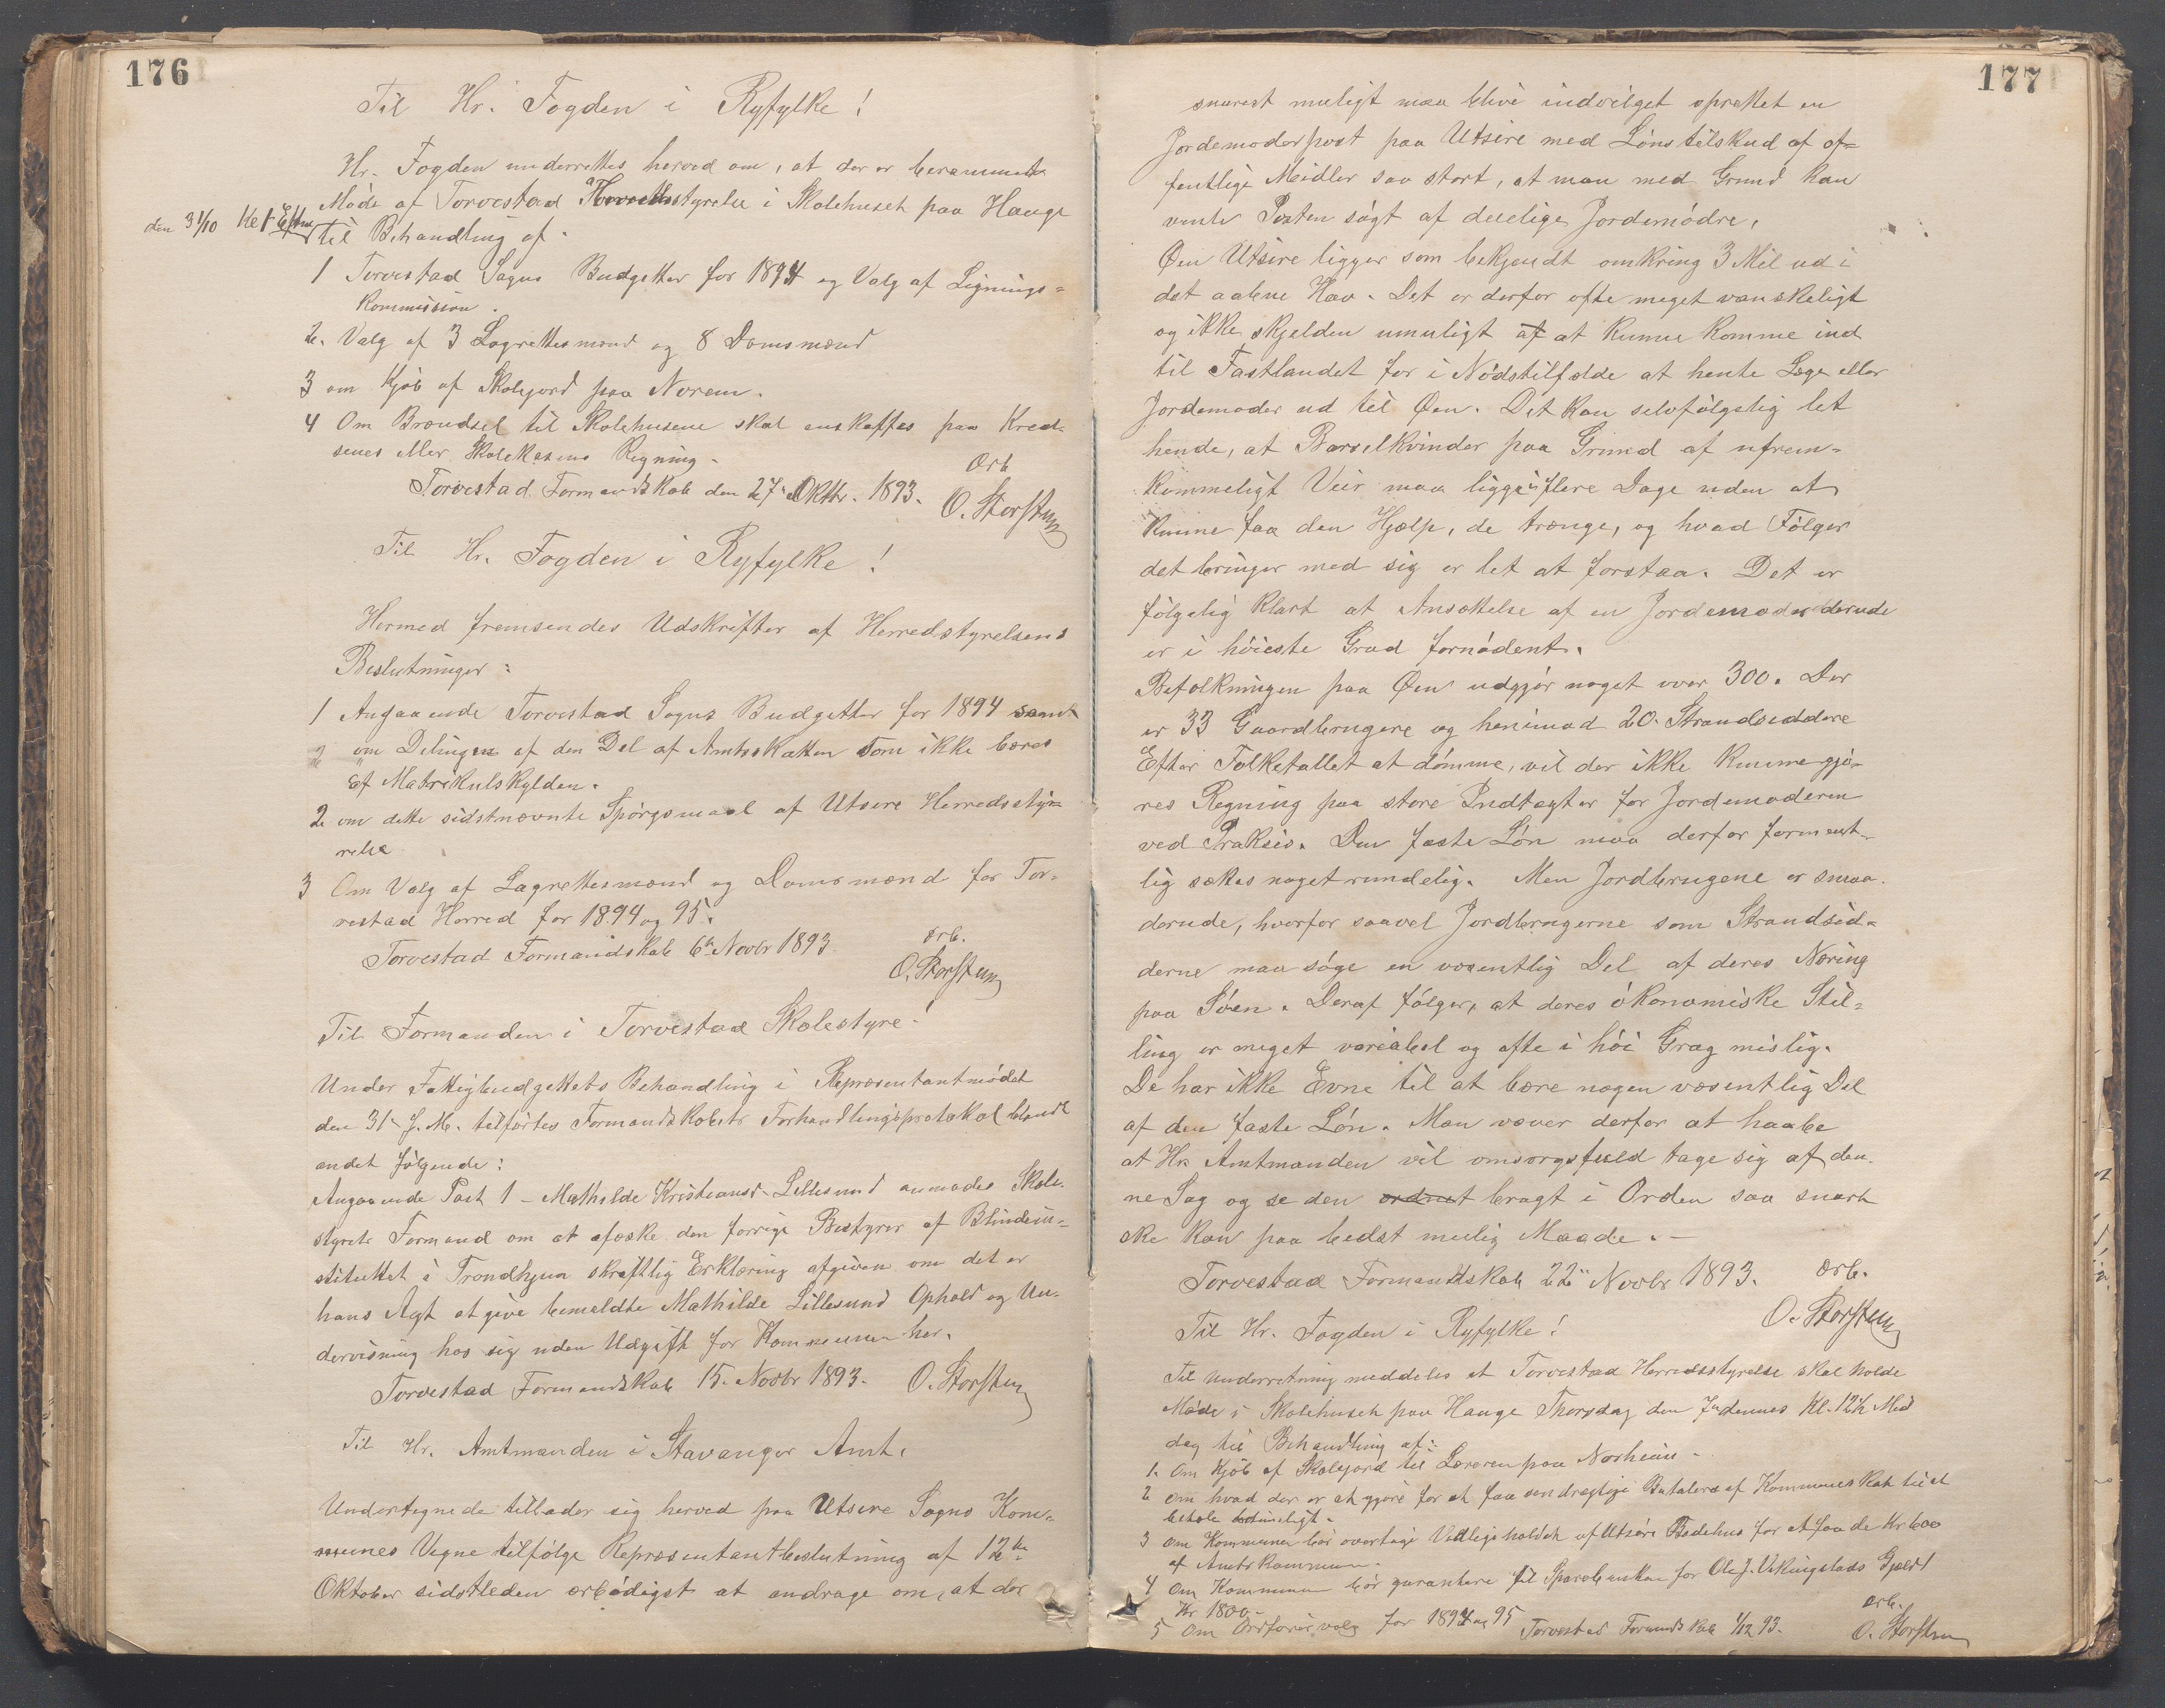 176
Til Hr. Fogden i Ryfylke!
Hr. Fogden underrettes herved om, at der er berammet
Møde af Torvestad Herredsstyrelse i Skolehuset paa Hauge
den 31/10 Kl 1 Efterm
til Behandling af.
1 Torvestad Sogns Budgetter for 1894 og Valg af Lignings=
kommission.
2. Valg af 3 Lagrettesmænd og 8 Domsmænd
3 om Kjøb af Skolejord paa Norem.
4 Om Brændsel til Skolehusene skal anskaffes paa Kred-
senes eller Skolekasens Regning.
Torvestad Formandskab den 27. Oktbr. 1893.
ærb
O. Storsteen
Til Hr. Fogden i Ryfylke!
Hermed fremsendes Udskrifter af Herredsstyrelsens
Beslutninger:
1 Angaaende Torvestad Sogns Budgetter for 1894 samt
2 om Delingen af den Del af Amtsskatten som ikke bæres
af Matrikulskylden.
2 om dette sidstnævnte Spørgsmaal af Utsire Herredssty-
relse
3 Om Valg af Lagrettesmænd og Domsmænd for Tor-
vestad Herred for 1894 og 95.
Torvestad Formandskab 6te Novbr 1893.
ærb.
O. Storsteen
Til Formanden i Torvestad Skolestyre!
Under Fattigbudgettets Behandling i Repræsentantmødet
den 31- f. M. tilførtes Formandskabets Forhandlingsprotokol blandt
andet følgende:
Angaaende Post 1 – Mathilde Kristiansd. Lillesund anmodes Skole-
styrets Formand om at afæske den forrige Bestyrer af Blindein-
stituttet i Trondhjem skriftlig Erklæring afgiven om det er
hans Agt at give bemeldte Mathilde Lillesund Ophold og Un-
dervisning hos sig uden Udgift for Kommunen her.
Torvestad Formandskab 15. Novbr 1893. O. Storsteen
Til Hr. Amtmanden i Stavanger Amt.
Undertegnede tillader sig herved paa Utsire Sogns Kom-
munes Vegne tilfølge Repræsentantbeslutning af 12te
Oktober sidstleden ærbødigst at andrage om, at der
177
snarest muligt maa blive indvilget oprettet en
Jordemoderpost paa Utsire med Lønstilskud af of=
fentlige Midler saa stort, at man med Grund kan
vente Posten søgt af duelige Jordemødre.
Øen Utsire ligger som bekjendt omkring 3 Mil ud i
det aabne Hav. Det er derfor ofte meget vanskeligt
og ikke skjelden umuligt af at kunne komme ind
til Fastlandet for i Nødstilfælde at hente Læge eller
Jordemoder ud til Øen. Det kan selvfølgelig let
hende, at Barselkvinder paa Grund af ufrem-
kommeligt Veir maa ligge i flere Dage uden at
kunne faa den Hjælp, de trænge, og hvad Følger
det bringer med sig er let at forstaa. Det er
følgelig klart at Ansættelse af en Jordemoder derude
er i høieste Grad fornødent.
Befolkningen paa Øen udgjør noget over 300. Der
er 33 Gaardbrugere og henimod 20 Strandsiddere
Efter Folketallet at dømme, vil der ikke kunne gjø-
res Regning paa store Indtægter for Jordemoderen
ved Praksis. Den faste Løn maa derfor forment-
lig sættes noget rundelig. Men Jordbrugene er smaa
derude, hvorfor saavel Jordbrugerne som Strandsid-
derne maa søge en væsentlig Del af deres Næring
paa Søen. Deraf følger, at deres økonomiske Stil-
ling er meget variabel og ofte i høi Grag mislig.
De har ikke Evne til at bære nogen væsentlig Del
af den faste Løn. Man vover derfor at haabe
at Hr Amtmanden vil omsorgsfuld tage sig af den-
ne Sag og se den ordnet bragt i Orden saa snart
ske kan paa bedst mulig Maade. –
Torvestad Formandskab 22. Novbr 1893.
ærb.
O. Storsteen
Til Hr. Fogden i Ryfylke!
Til Underretning meddeles at Torvestad Herredsstyrelse skal holde
Møde i Skolehuset paa Hauge Thorsdag den 7de dennes Kl. 12½ Mid
dag til Behandling af:
1. Om Kjøb af Skolejord til Læreren paa Norheim.
2 om hvad der er at gjøre for at faa sendrægtige Betalere af Kommuneskat til at
betale
3 om Kommunen bør overtage Vedligeholdet af Utsire Bedehus for at faa de Kr 600
af Amtskommunen.
4 Om Kommunen bør garantere til Sparebanken for Ole J. Vikingstads Gjæld
Kr 1800.
5 Om Ordførervalg for 1894 og 95
Torvestad Formandskab 1/12 93.
ærb.
O. Storsteen